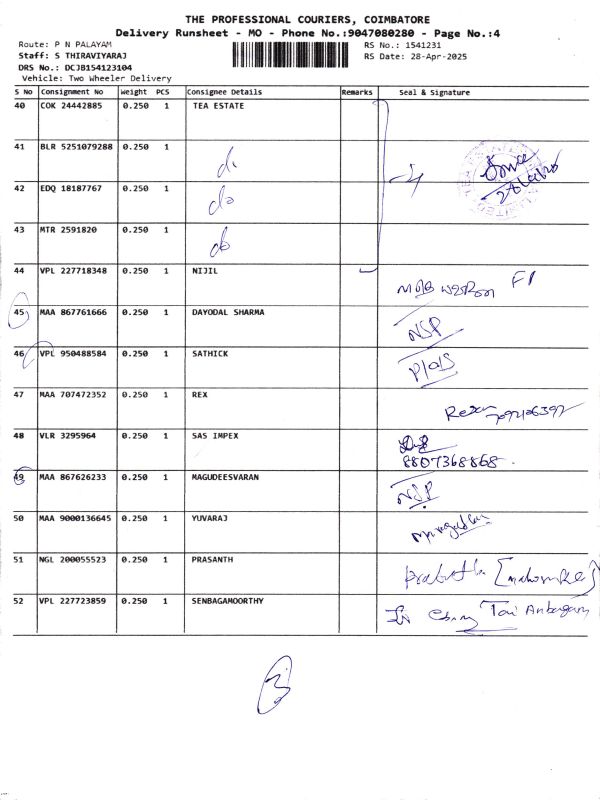 THE PROFESSIONAL COURIERS, COIMBATORE
Delivery Runsheet - MO - Phone No.:9047080280 - Page No.:4
Route: P N PALAYAM
RS No.: 1541231
Staff: S THIRAVIYARAJ
RS Date: 28-Apr-2025
DRS No.: DCJB154123104
Vehicle: Two Wheeler Delivery
S No Consignment No Weight PCS Consignee Details Remarks Seal & Signature
40 COK 24442885 0.250 1 TEA ESTATE
41 BLR 5251079288 0.250 1 do
42 EDQ 18187767 0.250 1 do
43 MTR 2591820 0.250 1 do
44 VPL 227718348 0.250 1 NIJIL
45 MAA 867761666 0.250 1 DAYODAL SHARMA NSP
46 VPL 950488584 0.250 1 SATHICK
47 MAA 707472352 0.250 1 REX
48 VLR 3295964 0.250 1 SAS IMPEX
8807368868
49 MAA 867626233 0.250 1 MAGUDEESVARAN NSP
50 MAA 9000136645 0.250 1 YUVARAJ
51 NGL 200055523 0.250 1 PRASANTH
52 VPL 227723859 0.250 1 SENBAGAMOORTHY